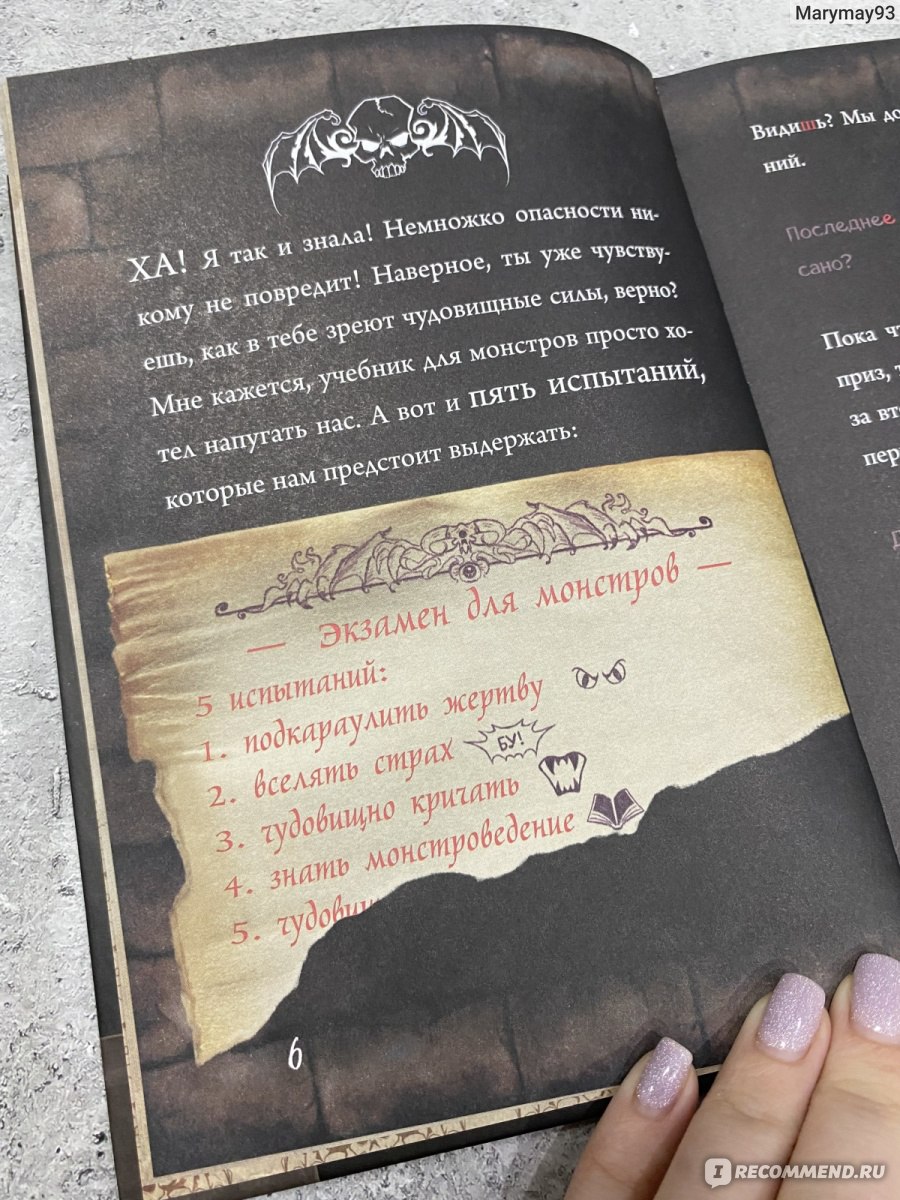 Marymay93
ХА! Я так и знала! Немножко опасности ни-
кому не повредит! Наверное, ты уже чувству-
ешь, как в тебе зреют чудовищные силы, верно?
Мне кажется, учебник для монстров просто хо-
тел напугать нас. А вот и пять испытаний,
которые нам предстоит выдержать:
— Экзамен для монстров —
5 испытаний:
1. подкараулить жертву
2. вселять страх
БУ!
3. чудовищно кричать
4. знать монстроведение
5.
6
Видишь? Мы
ний.
Последнее
сано?
Пока
приз,
за
IRECOMMEND.RU